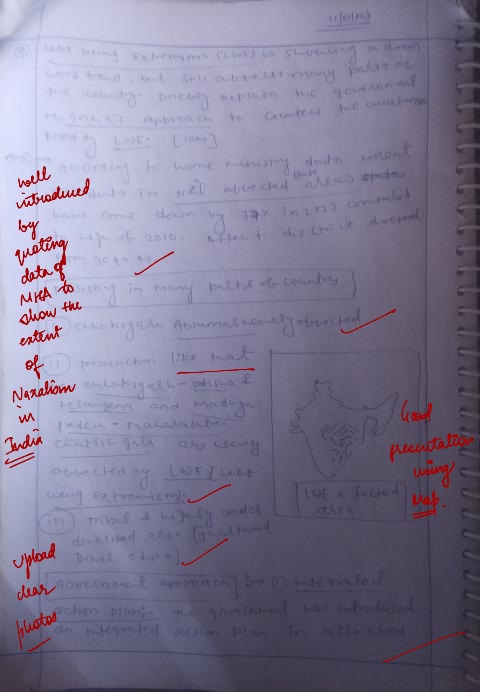 11/0
Left wing Extremism (LWE) is showing a down
word trend, but still affects many parts of
the country. Briefly explain the government
of India's approach to counter the
posed by LWE. [10M]
According to home ministry data violent
in affected areas
have come down by in 2022 compared
to of 2010. district dropped
from 90 to
in many parts of country
chhatisgarh heavely affected
(ii) like that
chhatisgarh - odisha &
telangana and madhya
pradesh - maharastra
are heavly
affected by LWE [left
wing Extremism].
(iii) Tribal & highly under
developed area [Jharkhand
Bihar Odisha]
LWE affected
area
Government approach :→ (i) integrated
action plan :- The government was introduced
an integrated action plan in affected
well
introduced
by
quoting
data of
MHA to
show the
extent
of
Naxalism
in
India
Good
presentation
using
Map.
upload
clear
photos